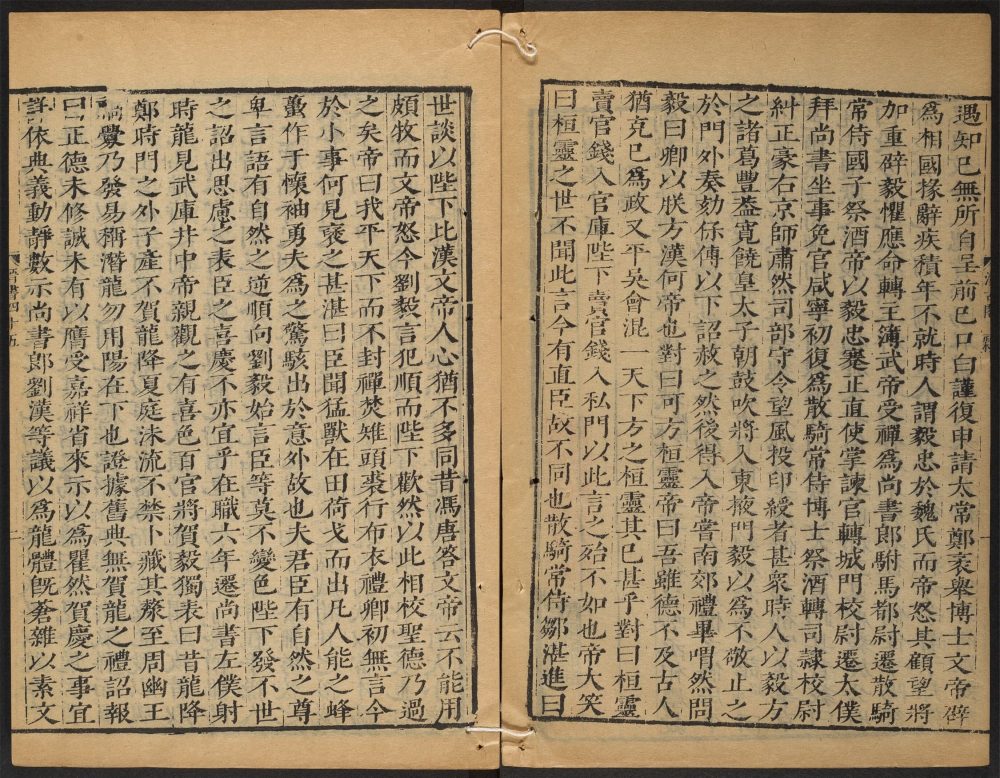 遇知已無所自呈前已口白謹復申請太常鄭袤舉博士文帝辟
爲相國掾辭疾積年不就時人謂毅忠於魏氏而帝怒其顧望將
加重辟毅懼應命轉主簿武帝受禪爲尚書郎駙馬都尉遷散騎
常侍國子祭酒帝以毅忠蹇正直使掌諫官轉城門校尉遷太僕
拜尚書坐事免官咸寧初復爲散騎常侍博士祭酒轉司隷校尉
糾正豪右京師肅然司部守令望風投印綬者甚衆時人以毅方
之諸葛豐葢寛饒皇太子朝鼓吹將入東掖門毅以爲不敬止之
於門外奏劾保傅以下詔赦之然後得入帝嘗南郊禮畢喟然問
毅曰卿以朕方漢何帝也對曰可方桓靈帝曰吾雖德不及古人
猶克已爲政又平吳會混一天下方之桓靈其已甚乎對曰桓靈
賣官錢入官庫陛下賣官錢入私門以此言之殆不如也帝大笑
曰桓靈之世不聞此言今有直臣故不同也散騎常侍鄒湛進曰
世談以陛下比漢文帝人心猶不多同昔馮唐答文帝云不能用
頗牧而文帝怒今劉毅言犯順而陛下歡然以此相校聖德乃過
之矣帝曰我平天下而不封禪焚雉頭裘行布衣禮卿初無言今
於小事何見褒之甚湛曰臣聞猛獸在田荷戈而出凡人能之蜂
蠆作于懷袖勇夫爲之驚駭出於意外故也夫君臣有自然之尊
卑言語有自然之逆順向劉毅始言臣等莫不變色陛下發不世
之詔出思慮之表臣之喜慶不亦宜乎在職六年遷尚書左僕射
時龍見武庫井中帝親觀之有喜色百官將賀毅獨表曰昔龍降
鄭時門之外子產不賀龍降夏庭沬流不禁卜藏其漦至周幽王
禍釁乃發易稱潛龍勿用陽在下也證據舊典無賀龍之禮詔報
曰正德未修誠未有以膺受嘉祥省來示以爲瞿然賀慶之事宜
詳依典義動靜數示尚書郎劉漢等議以爲龍體旣蒼雜以素文